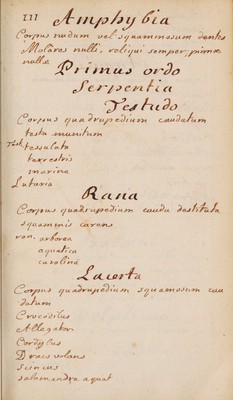 III
Amphybia
Corpus nudum vel squammosum dentes
Molares nulli, reliqui semper, pinnæ
nullæ
Primus ordo
Serpentia
Testudo
Corpus quadrupedium caudatum
testa munitum
Test. tessulata
terrestris
marina
Lutaria
Rana
Corpus quadrupedium cauda destituta
squammis carens
ran. arborea
aquatica
carolina
Lacerta
Corpus quadrupedium squamosum cau
datum
Crocodilus
Allegator
Cordylus
Draco volans
scincus
salamandra aquat